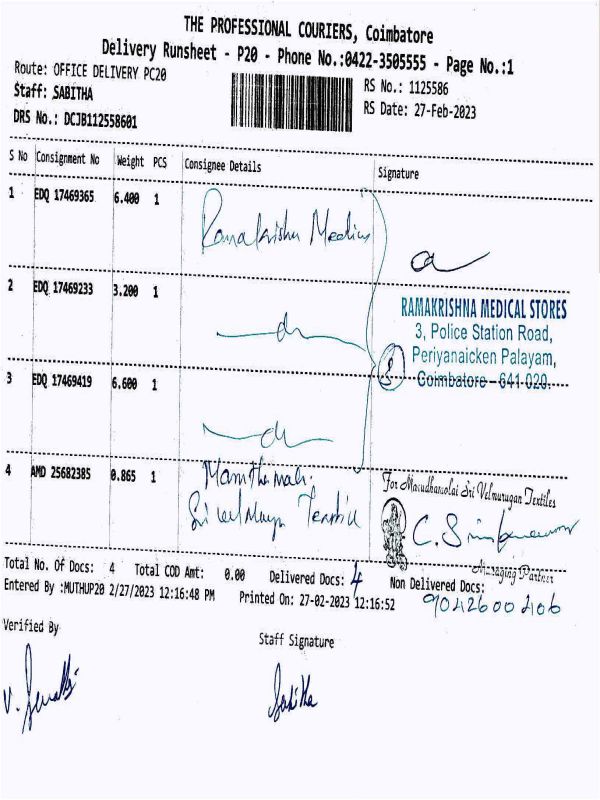 THE PROFESSIONAL COURIERS, Coimbatore
Delivery Runsheet - P20 - Phone No.:0422-3505555 - Page No.:1
Route: OFFICE DELIVERY PC20
RS No.: 1125586
Staff: SABITHA
RS Date: 27-Feb-2023
DRS No.: DCJB112558601
S No Consignment No Weight PCS Consignee Details Signature
1 EDQ 17469365 6.400 1 Ramakrishna Medicals
2 EDQ 17469233 3.200 1 do
RAMAKRISHNA MEDICAL STORES
3, Police Station Road,
Periyanaicken Palayam,
Coimbatore - 641 020.
3 EDQ 17469419 6.600 1 do
4 AMD 25682385 0.865 1
For Marudhamalai Sri Velmurugan Textiles
Managing Partner
Total No. Of Docs: 4 Total COD Amt: 0.00 Delivered Docs: 4 Non Delivered Docs:
9042600406
Entered By :MUTHUP20 2/27/2023 12:16:48 PM Printed On: 27-02-2023 12:16:52
Verified By
Staff Signature
Sabitha